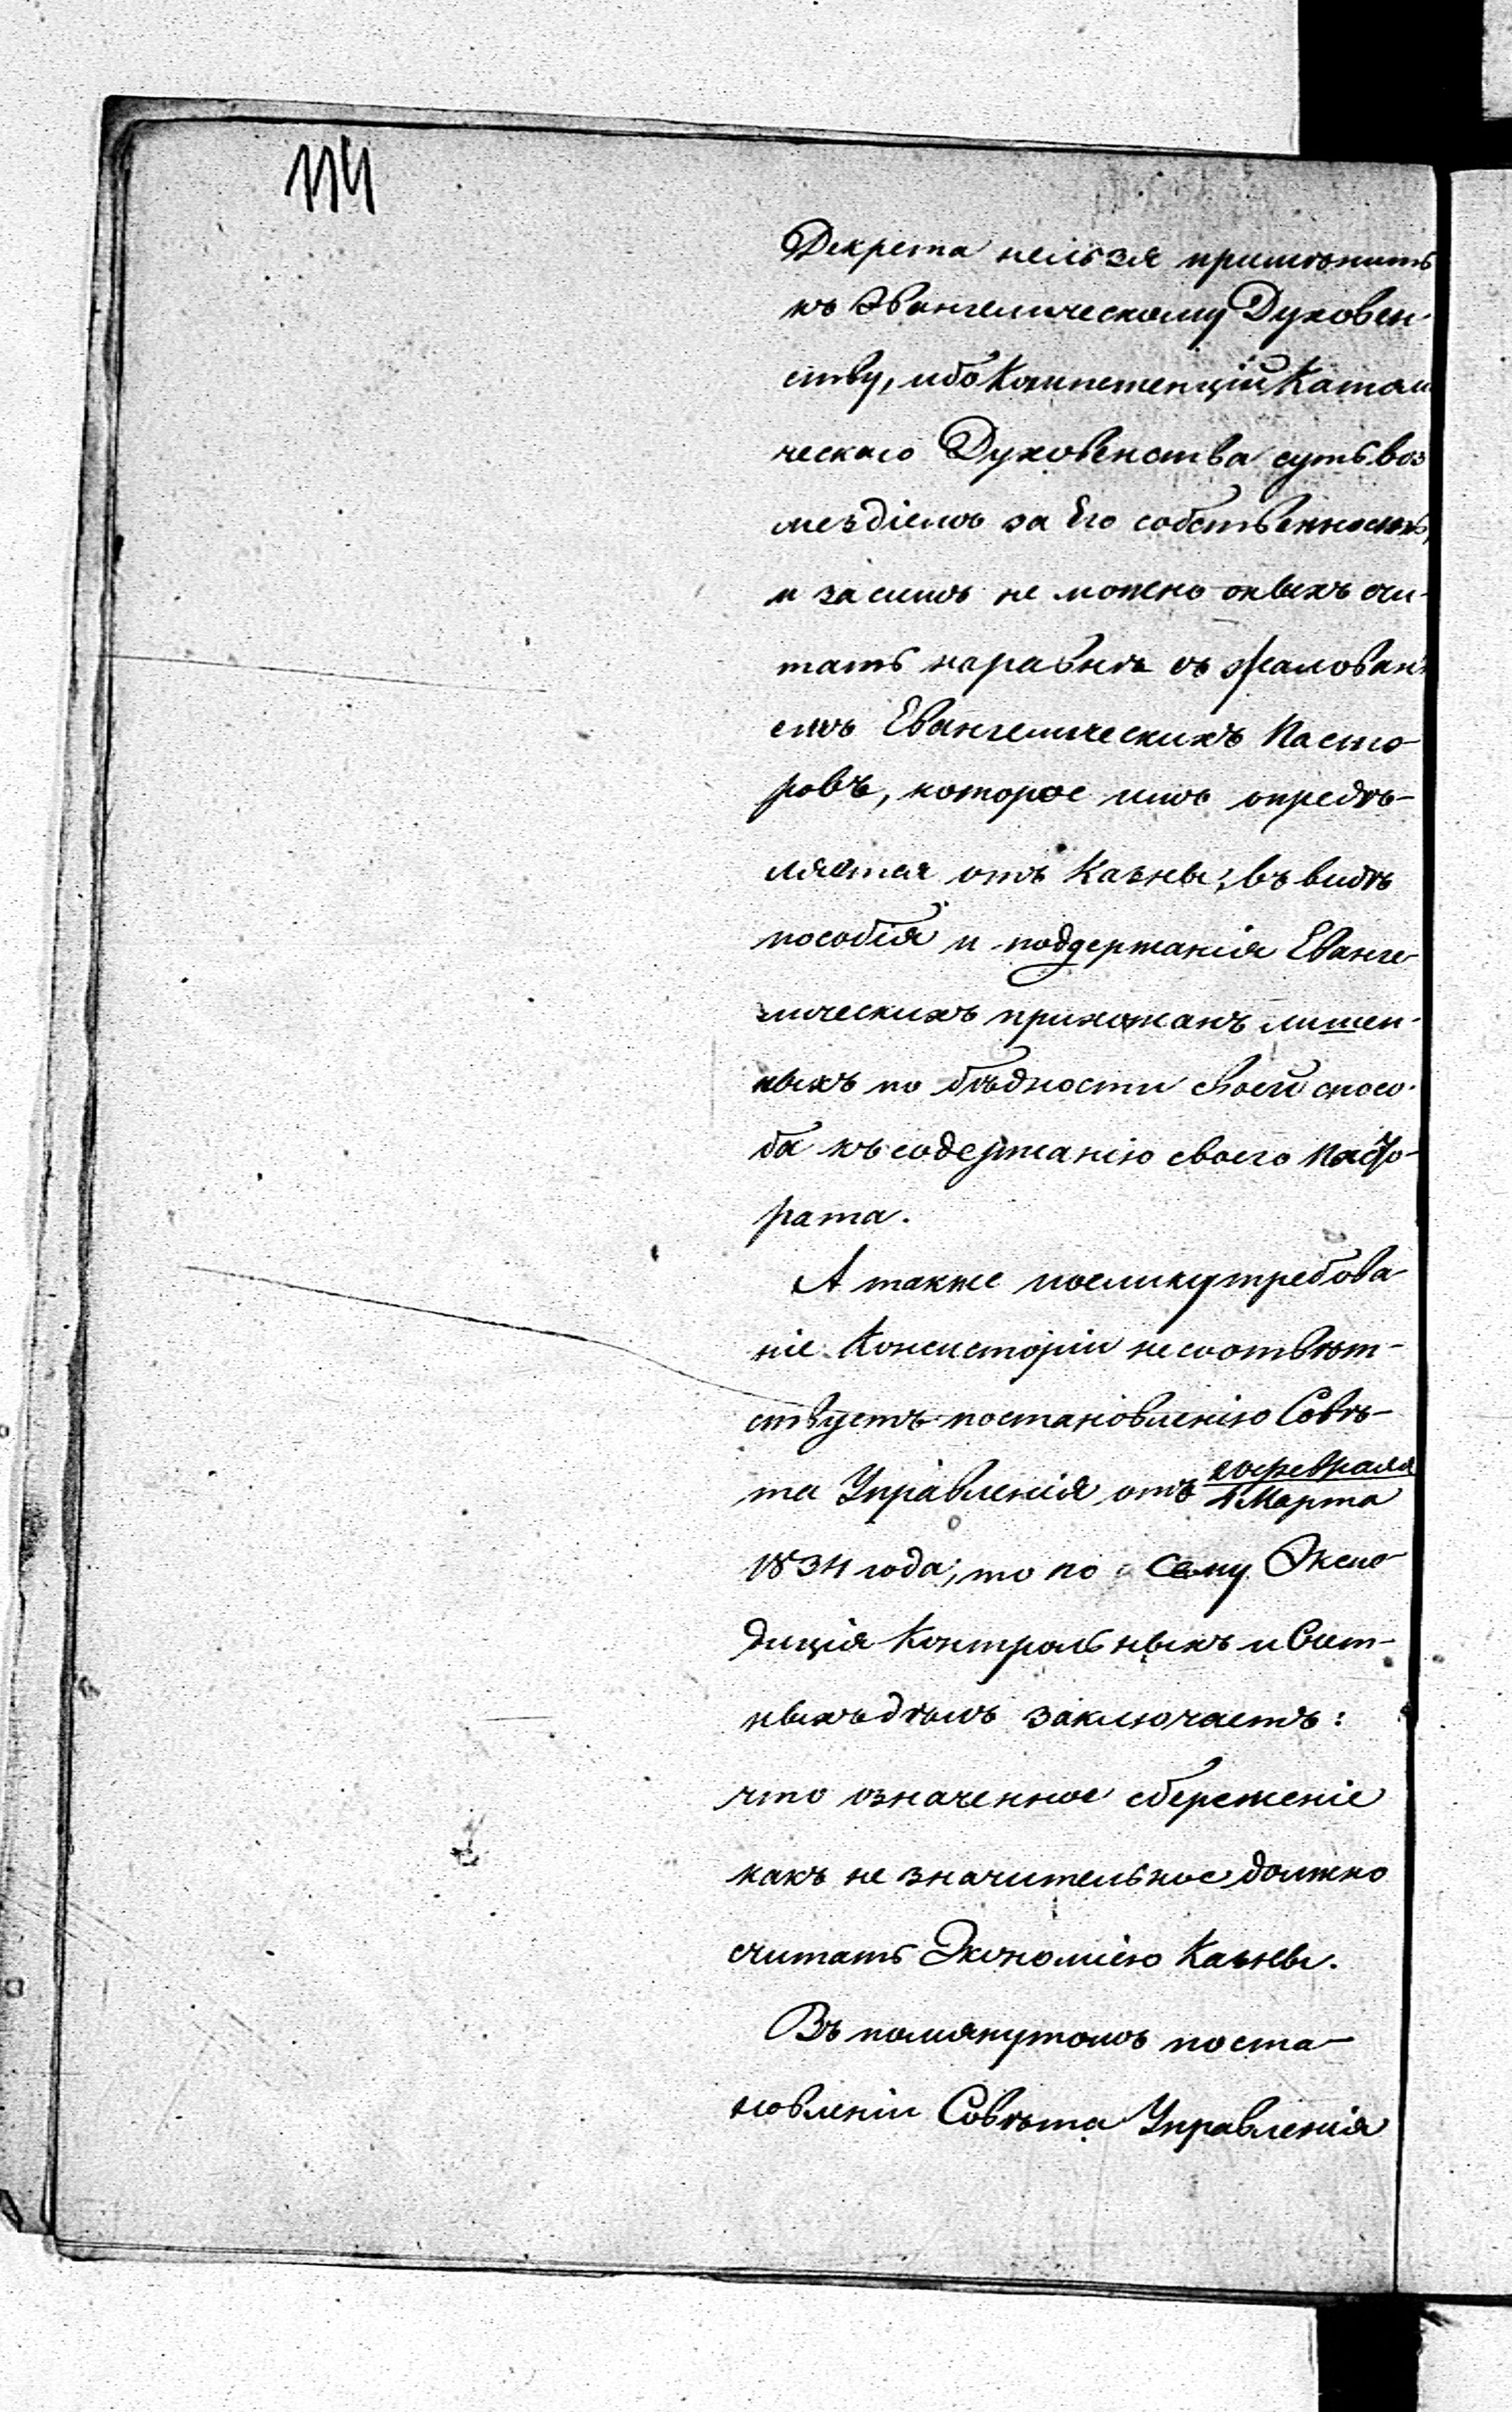 114
Декрета нельзя примѣнить
къ Эвангелическому Духовен-
ству, ибо Компетенціи Катали
ческаго Духовенства суть воз
мездіемъ за Его собственность,
и за симъ не можно оныхъ счи-
тать наравнѣ съ жалован
емъ Евангелическихъ Пасто-
ровъ, которое имъ опредѣ-
ляется отъ Казны, въ видѣ
пособія и поддержанія Еванге-
лическихъ прихожанъ лишен-
ныхъ по бѣдности своей спосо-
ба къ содержанію своего Пасто-
рата.
А также поелику требова-
ніе Консисторіи не соотвѣт-
ствуетъ постановленію Совѣ-
та Управленія отъ Февраля
4 Марта
1834 года; то по сему Экспе-
диція Контрольныхъ и Счет-
ныхъ дѣлъ заключаетъ:
что означенное сбереженіе
какъ не значительное должно
считать Экономіею Казны.
Въ помянутомъ поста-
новленіи Совѣта Управленія